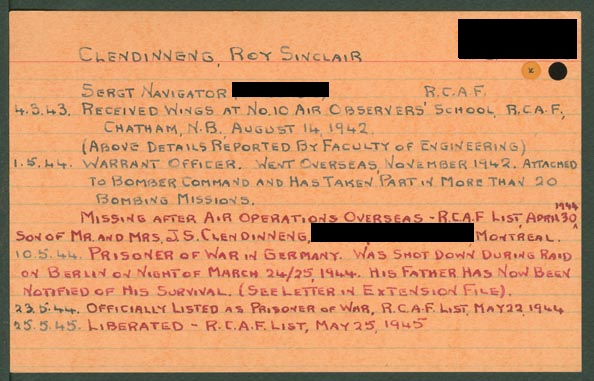 CLENDINNENG, ROY SINCLAIR
SERGT NAVIGATOR R.C.A.F.
4.3.43. RECEIVED WINGS AT NO.10 AIR OBSERVERS' SCHOOL, R.C.A.F.,
CHATHAM, N.B. AUGUST 14, 1942.
(ABOVE DETAILS REPORTED BY FACULTY OF ENGINEERING)
1.5.44. WARRANT OFFICER. WENT OVERSEAS, NOVEMBER 1942. ATTACHED
TO BOMBER COMMAND AND HAS TAKEN PART IN MORE THAN 20
BOMBING MISSIONS.
MISSING AFTER AIR OPERATIONS OVERSEAS - R.C.A.F LIST, APRIL 30 1944
SON OF MR. AND MRS. J.S. CLENDINNENG, MONTREAL.
10.5.44. PRISONER OF WAR IN GERMANY. WAS SHOT DOWN DURING RAID
ON BERLIN ON NIGHT OF MARCH 24/25, 1944. HIS FATHER HAS NOW BEEN
NOTIFIED OF HIS SURVIVAL. (SEE LETTER IN EXTENSION FILE).
23.5.44. OFFICIALLY LISTED AS PRISONER OF WAR, R.C.A.F. LIST, MAY 22, 1944
25.5.45. LIBERATED - R.C.A.F. LIST, MAY 25, 1945